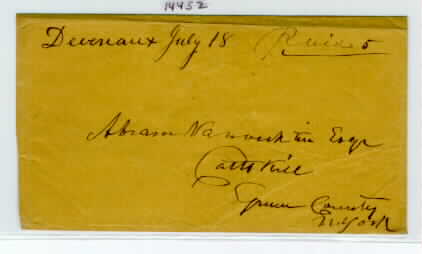 14452
Devereaux July 18 Paid 5
Abram Esqr
Cattskill
Green County
N.York